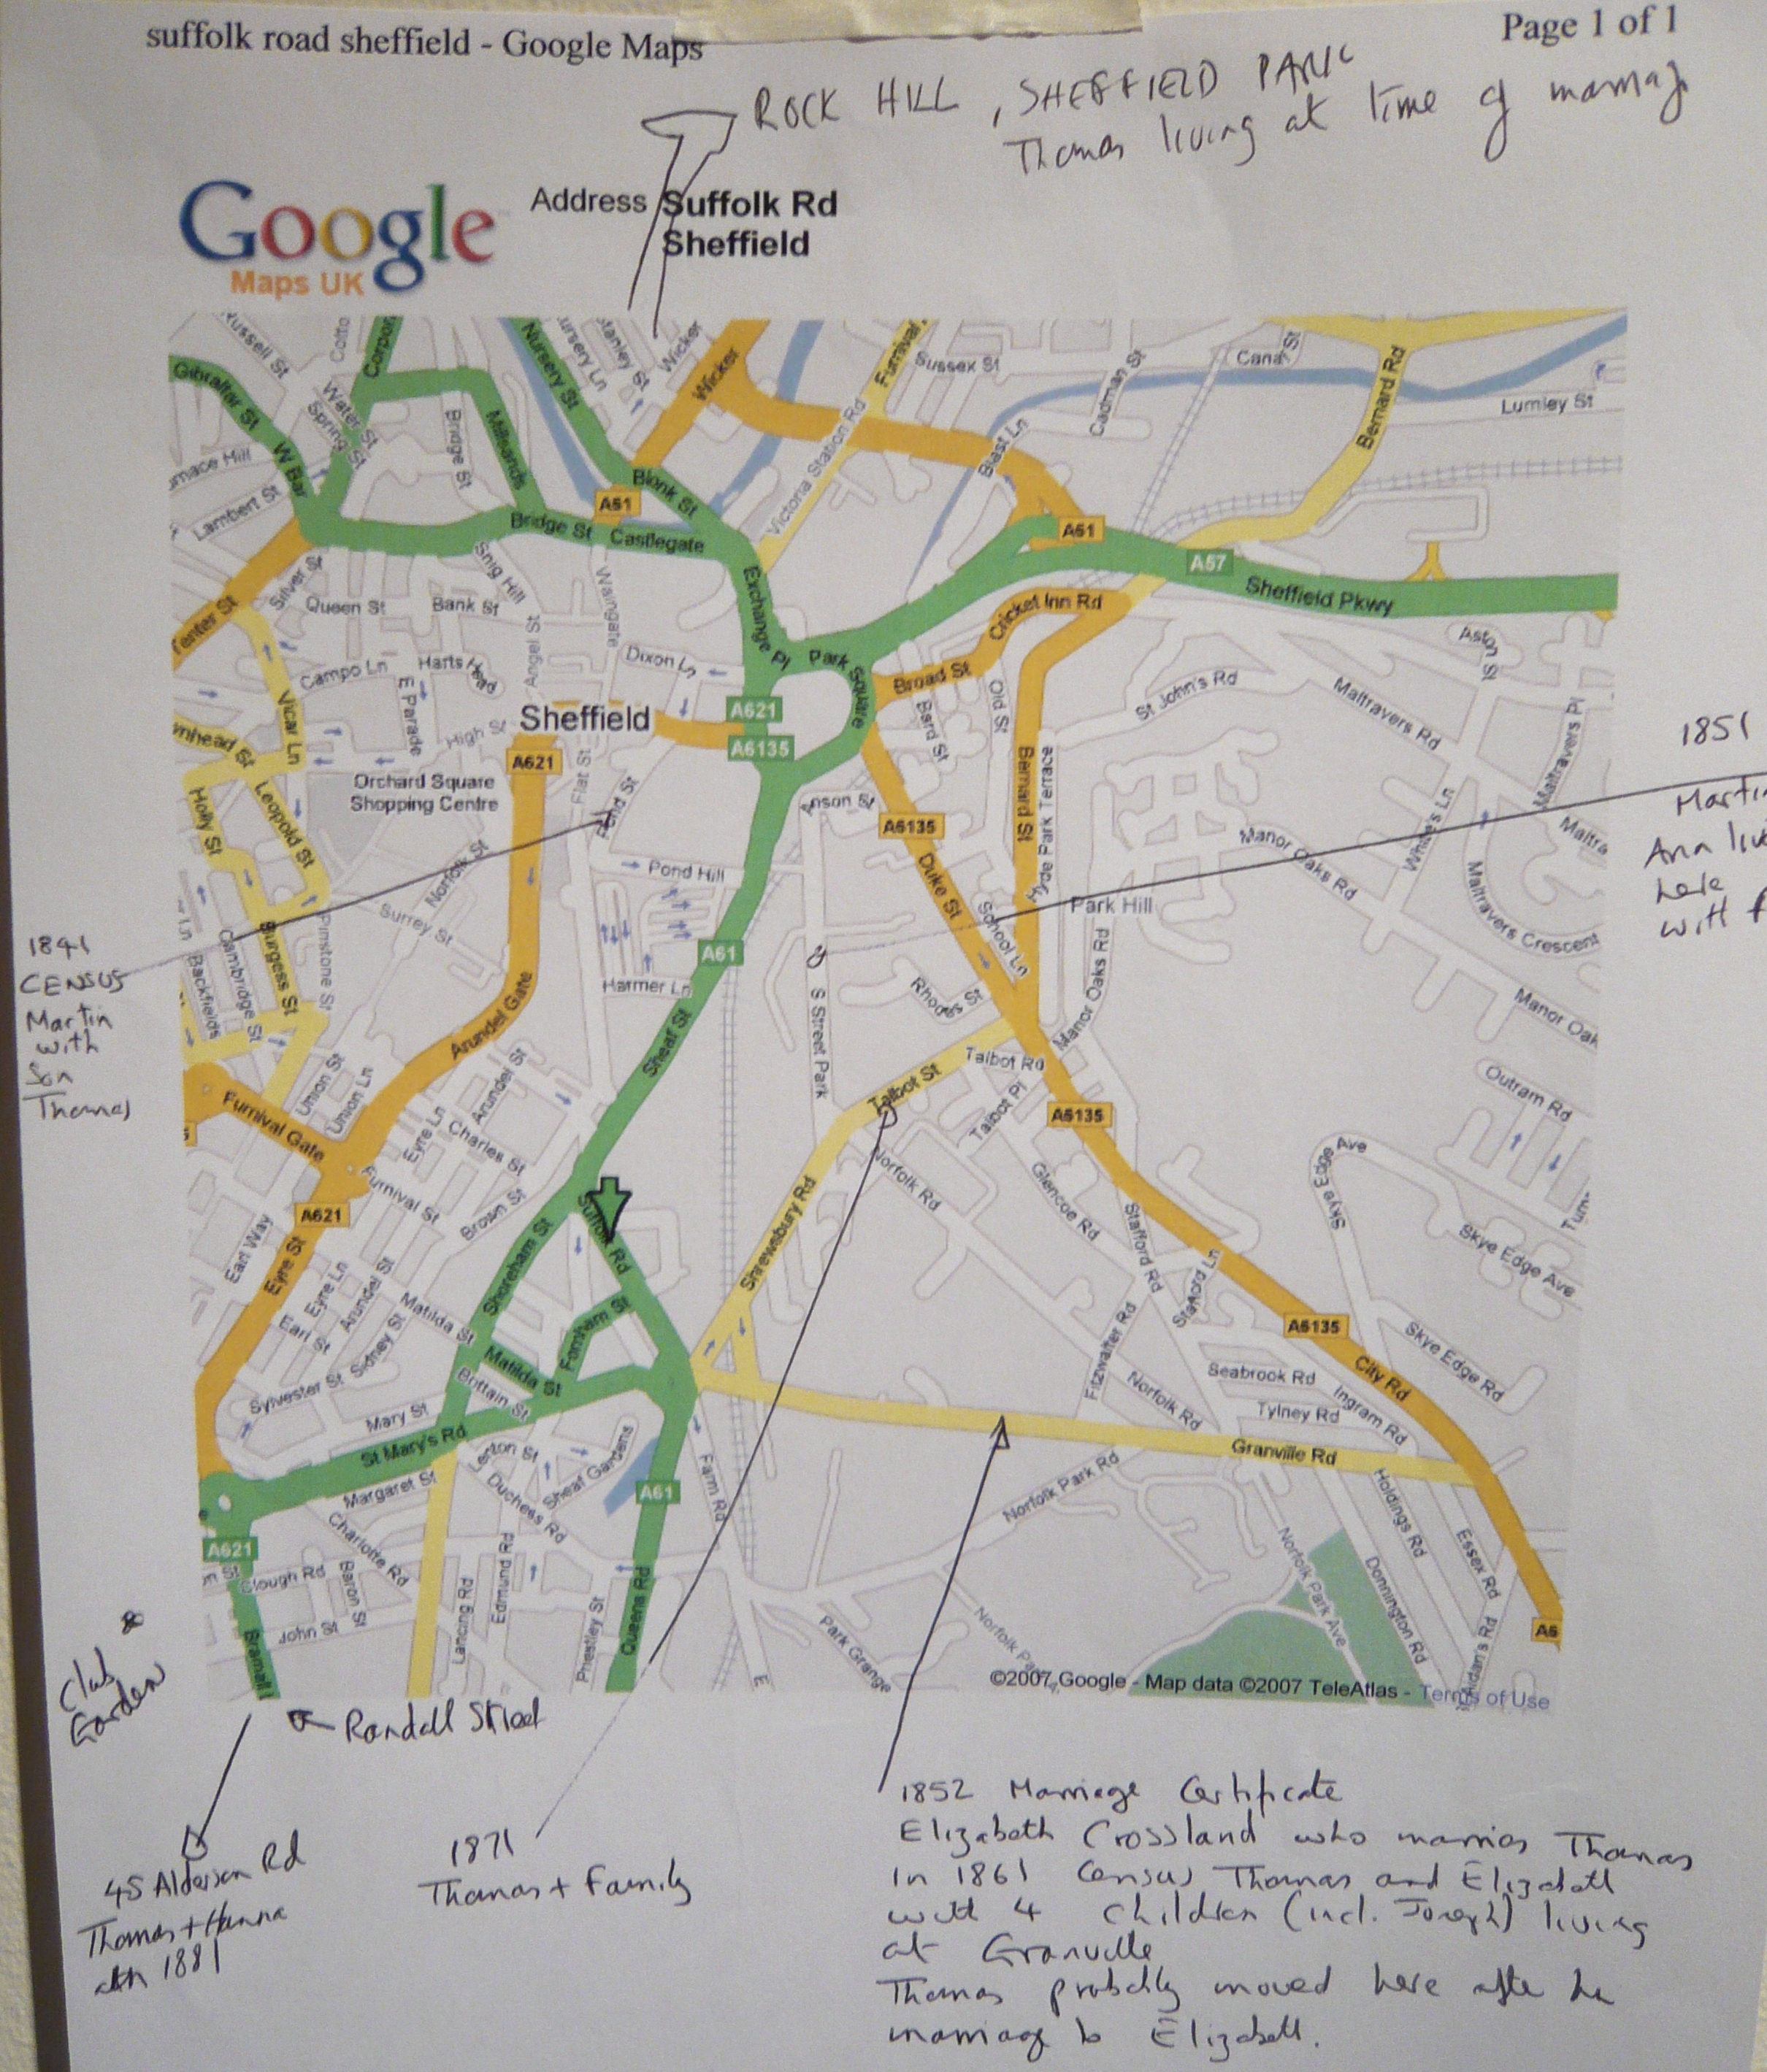 suffolk road sheffield - Google Maps
Page 1 of 1
ROCK HILL, SHEFFIELD PARK
Thomas living at time of marriage
Google
Maps UK
Address Suffolk Rd
Sheffield
Russell St
Corpor
Nursery St
Nursery Ln
Stanley St
Wicker
Wicker
Furnival
Sussex St
Cadman St
Canal St
Bernard Rd
Lumley St
Gibraltar St
Water St
Spring St
W Bar
Bridge St
Millsands
Victoria Station Rd
Blast Ln
Lambert St
Blonk St
A61
Bridge St
Castlegate
A61
A57
Sheffield Pkwy
Snig Hill
Waingate
Exchange Pl
Cricket Inn Rd
Silver St
Queen St
Bank St
Tenter St
Angel St
Dixon Ln
Park Square
Broad St
Aston St
Campo Ln
Harts Head
E Parade
Vicar Ln
High St
Sheffield
A621
A6135
Bard St
Old St
St John's Rd
Maltravers Rd
Maltravers Pl
1851
A621
Orchard Square
Shopping Centre
Flat St
Pond St
Anson St
A6135
Bernard St
Hyde Park Terrace
Martin
Ann liv
here
with f
Holly St
Leopold St
Norfolk St
Surrey St
Pond Hill
Duke St
School Ln
Park Hill
Manor Oaks Rd
White's Ln
Maltravers Crescent
1841
CENSUS
Martin
with
Son
Thomas
Backfields
Cambridge St
Burgess St
Pinstone St
A61
Harmer Ln
Rhodes St
S Street Park
Manor Oaks Rd
Manor Oak
Arundel Gate
Sheaf St
Talbot St
Talbot Rd
Talbot Pl
A6135
Outram Rd
Furnival Gate
Union St
Union Ln
Eyre Ln
Arundel St
Charles St
Furnival St
Brown St
Norfolk Rd
Glencoe Rd
Stafford Rd
Stafford Ln
Skye Edge Ave
Skye Edge Ave
A621
Earl Way
Eyre St
Suffolk Rd
Shoreham St
Shrewsbury Rd
Eyre Ln
Arundel St
Matilda St
Earl St
Sidney St
Farnham St
Matilda St
Fitzwalter Rd
A6135
Skye Edge Rd
City Rd
Sylvester St
Mary St
Bottain St
Seabrook Rd
Norfolk Rd
Tylney Rd
Ingram Rd
Granville Rd
St Mary's Rd
Margaret St
Lenton St
Sheaf Gardens
Duchess Rd
A61
Farm Rd
Norfolk Park Rd
Holdings Rd
Essex Rd
Charlotte Rd
A621
Clough Rd
Baron St
John St
Bramall L
Lancing Rd
Edmund Rd
Priestley St
Queens Rd
Park Grange
Norfolk Park Ave
Donnington Rd
St Aidan's Rd
A6
©2007 Google - Map data ©2007 TeleAtlas - Terms of Use
Club
Garden
Randall Street
45 Alderson Rd
Thomas + Hanna
1881
1871
Thomas + Family
1852 Marriage Certificate
Elizabeth Crossland who marries Thomas
In 1861 Census Thomas and Elizabeth
with 4 children (incl. Joseph) living
at Granville
Thomas probably moved here after he
marriage to Elizabeth.